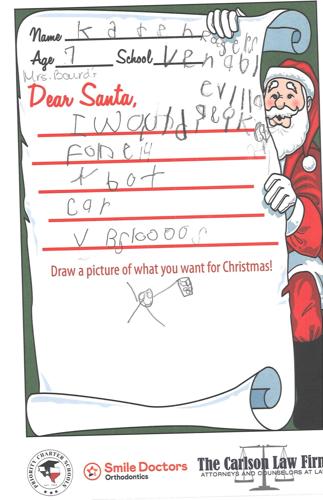 Name Kateh
Age 7 School Venabl
Mrs. Bourd's
evilla
Dear Santa,
I would
Fone 14
x bot
car
V Bgloooos
Draw a picture of what you want for Christmas!
PRIORITY CHARTER SCHOOLS
Smile Doctors
Orthodontics
The Carlson Law Firm
ATTORNEYS AND COUNSELORS AT LA